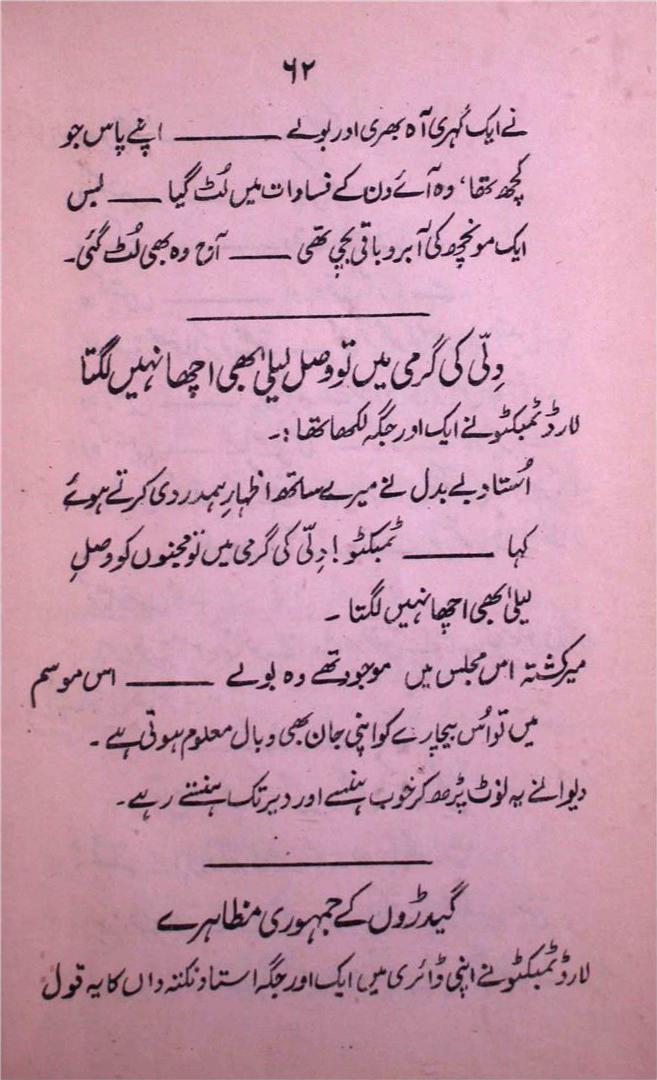 ۶۲
نے ایک گہری آہ بھری اور بولے ——— اپنے پاس جو
کچھ تھا، وہ آئے دن کے فسادات میں لُٹ گیا —— بس
ایک مونچھ کی آبرو باقی بچی تھی —— آج وہ بھی لُٹ گئی۔
دِلّی کی گرمی میں تو وصل لیلیٰ بھی اچھا نہیں لگتا
لارڈ ٹمبکٹو نے ایک اور جگہ لکھا تھا :۔
اُستاد بے بدل نے میرے ساتھ اظہارِ ہمدردی کرتے ہوئے
کہا ——— ٹمبکٹو! دِلّی کی گرمی میں تو مجنوں کو وصلِ
لیلیٰ بھی اچھا نہیں لگتا ۔
میر کشتہ اس مجلس میں موجود تھے وہ بولے ——— اس موسم
میں تو اُس بیچارے کو اپنی جان بھی وبال معلوم ہوتی ہے ۔
دیوانے یہ نوٹ پڑھ کر خوب ہنسے اور دیر تک ہنستے رہے۔
گیدڑوں کے جمہوری مظاہرے
لارڈ ٹمبکٹو نے اپنی ڈائری میں ایک اور جگہ استاد نکتہ داں کا یہ قول